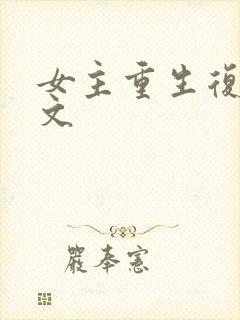 女主重生復
文
嚴奉憲